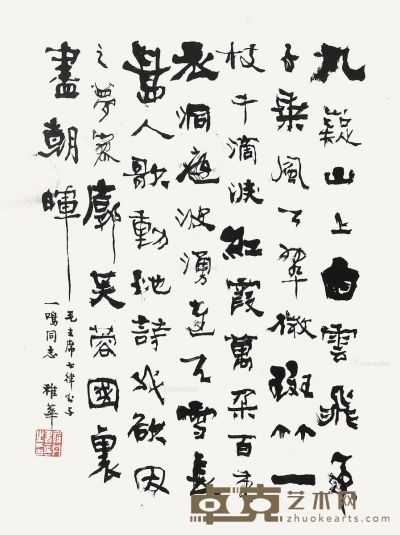 九嶷山上白雲飛帝
子乘風下翠微斑竹一
枝千滴淚紅霞萬朵百重
衣洞庭波湧連天雪長
島人歌動地詩我欲因
之夢寥廓芙蓉國裏
盡朝暉
毛主席七律
一鳴同志 雅華
卓克艺术网
zhuokearts.com